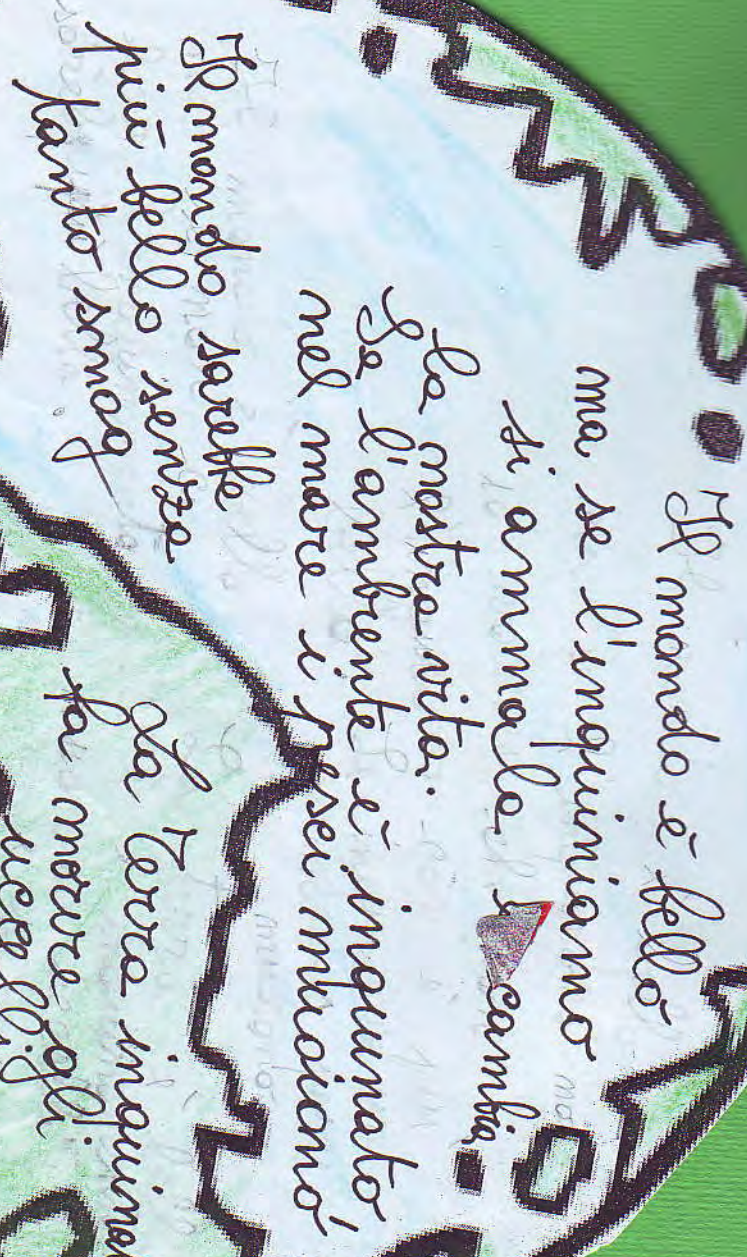 Il mondo è bello
ma se l'inquiniamo
si ammala e cambia
la nostra vita.
Se l'ambiente è inquinato
nel mare i pesci muoiono
Il mondo sarebbe
più bello senza
tanto smog
La Terra
fa morire gli